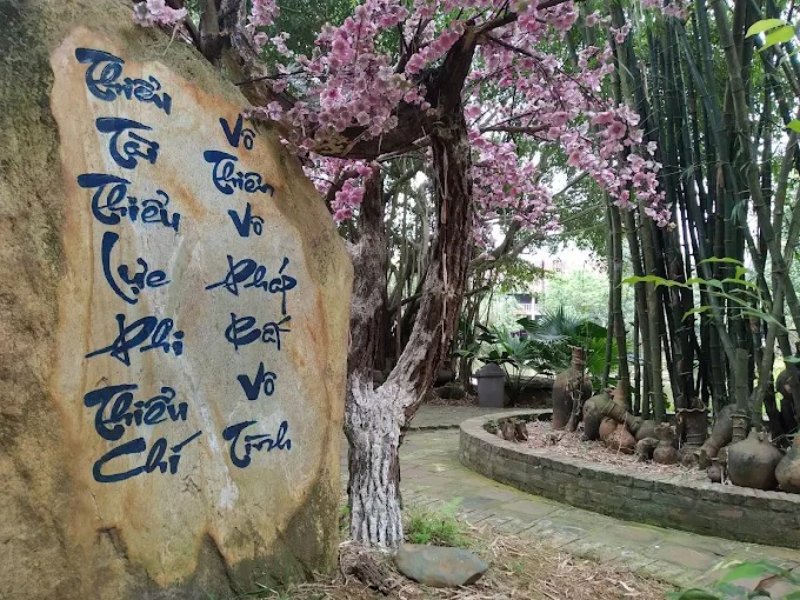 Thiểu
Tài
Thiểu
Lực
Phi
Thiểu
Chí
Vô
Thiền
Vô
Pháp
Bất
Vô
Tình